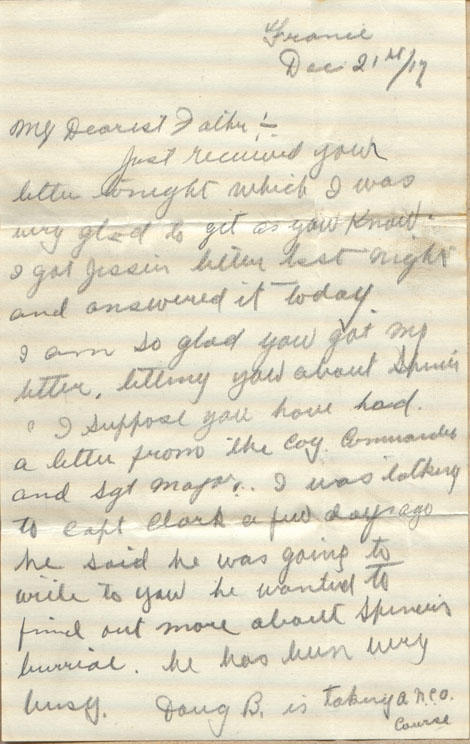 France
Dec 21st/17
My Dearest Father:-
Just received your
letter tonight which I was
very glad to get as you know.
I got Jessin letter last night
and answered it today.
I am so glad you got my
letter, telling you about Spencers
I suppose you have had
a letter from the Coy. Commander
and Sgt Major. I was talking
to Capt Clark a few days ago
he said he was going to
write to you he wanted to
find out more about Spencers
burrial. he has been very
busy. Doug B. is taking a N.C.O.
Course